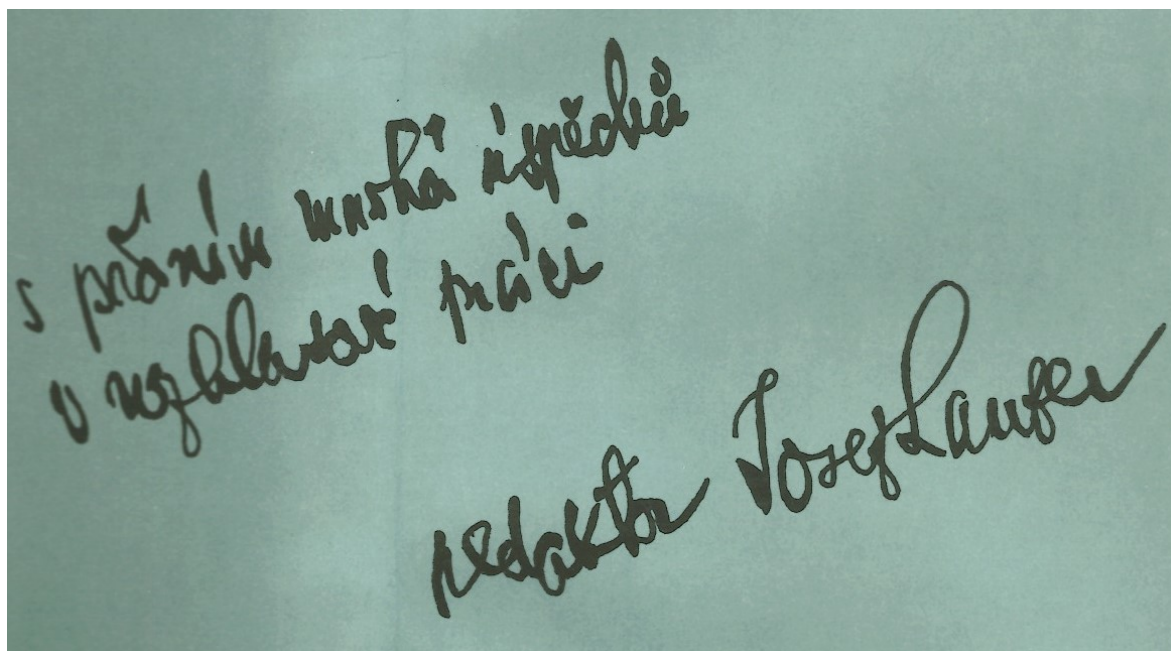 s přáním mnoha úspěchů
v rozhlasové práci
redaktor Josef Laufer